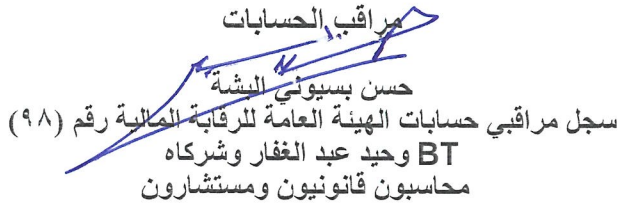 مراقب الحسابات
حسن بسيوني البشة
سجل مراقبي حسابات الهيئة العامة للرقابة المالية رقم (٩٨)
BT وحيد عبد الغفار وشركاه
محاسبون قانونيون ومستشارون